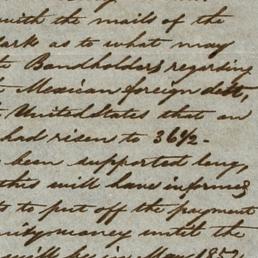 with the mails of the
dark as to what may
Bondholders regarding
Mexican foreign debt,
United States that an
had risen to 36½-
been supported long,
this will have informed
to put off the payment
money until the
will be in May 185